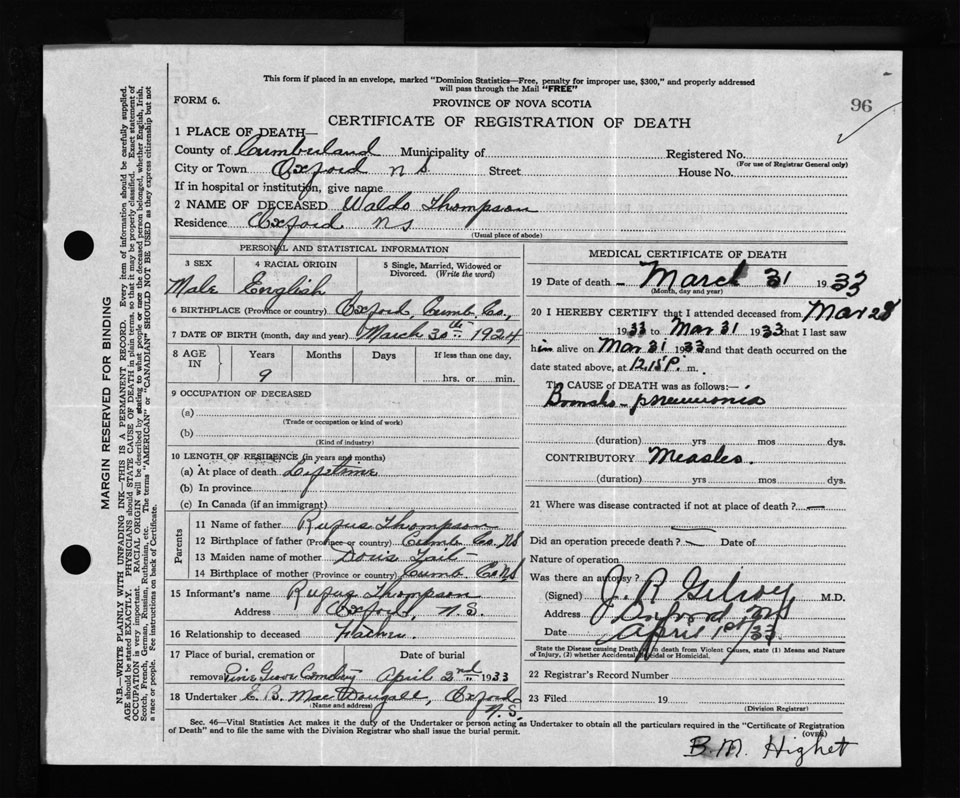 This form if placed in an envelope, marked "Dominion Statistics—Free, penalty for improper use, $300," and properly addressed
will pass through the Mail "FREE"
96
FORM 6.
PROVINCE OF NOVA SCOTIA
CERTIFICATE OF REGISTRATION OF DEATH
1 PLACE OF DEATH—
County of Cumberland Municipality of Registered No.
(For use of Registrar General only)
City or Town Oxford N S Street House No.
If in hospital or institution, give name
2 NAME OF DECEASED Waldo Thompson
Residence Oxford NS
(Usual place of abode)
PERSONAL AND STATISTICAL INFORMATION
3 SEX 4 RACIAL ORIGIN 5 Single, Married, Widowed or
Divorced. (Write the word)
Male English
6 BIRTHPLACE (Province or country) Oxford, Cumb, Co.,
7 DATE OF BIRTH (month, day and year) March 30th 1924
8 AGE IN Years Months Days If less than one day,
9 hrs. or min.
9 OCCUPATION OF DECEASED
(a)
(Trade or occupation or kind of work)
(b)
(Kind of industry)
10 LENGTH OF RESIDENCE (in years and months)
(a) At place of death Lifetime
(b) In province
(c) In Canada (if an immigrant)
Parents
11 Name of father Rufus Thompson
12 Birthplace of father (Province or country) Cumb. Co. NS
13 Maiden name of mother Doris Tait
14 Birthplace of mother (Province or country) Cumb. Co. NS
15 Informant's name Rufus Thompson
Address Oxford, N.S.
16 Relationship to deceased Father
17 Place of burial, cremation or Date of burial
removal Pine Grove Cemetery April 2nd 1933
18 Undertaker E. B. MacDougall, Oxford
(Name and address) N.S.
MEDICAL CERTIFICATE OF DEATH
19 Date of death March 31 1933
(Month, day and year)
20 I HEREBY CERTIFY that I attended deceased from Mar 28
1933 to Mar 31 1933 that I last saw
him alive on Mar 31 1933 and that death occurred on the
date stated above, at 12.15 P. m.
The CAUSE of DEATH was as follows:—
Broncho-pneumonia
(duration) yrs mos dys.
CONTRIBUTORY Measles.
(duration) yrs mos dys.
21 Where was disease contracted if not at place of death? —
Did an operation precede death? — Date of
Nature of operation
Was there an autopsy?
(Signed) J. R. Gilroy M.D.
Address Oxford NS
Date April 1st/33
State the Disease causing Death, or in death from Violent Causes, state (1) Means and Nature
of Injury, (2) whether Accidental, Suicidal or Homicidal.
22 Registrar's Record Number
23 Filed 19
(Division Registrar)
Sec. 46—Vital Statistics Act makes it the duty of the Undertaker or person acting as Undertaker to obtain all the particulars required in the "Certificate of Registration
of Death" and to file the same with the Division Registrar who shall issue the burial permit.
(OVER)
B. M. Highet
MARGIN RESERVED FOR BINDING
N.B.—WRITE PLAINLY WITH UNFADING INK—THIS IS A PERMANENT RECORD. Every item of information should be carefully supplied.
AGE should be stated EXACTLY. PHYSICIANS should STATE CAUSE OF DEATH in plain terms, so that it may be properly classified. Exact statement of
OCCUPATION is very important. RACIAL ORIGIN will be described by stating to what people or race the deceased person belonged, whether English, Irish,
Scotch, French, German, Russian, Ruthenian, etc. The terms "AMERICAN" or "CANADIAN" SHOULD NOT BE USED as they express citizenship but not
a race or people. See instructions on back of Certificate.